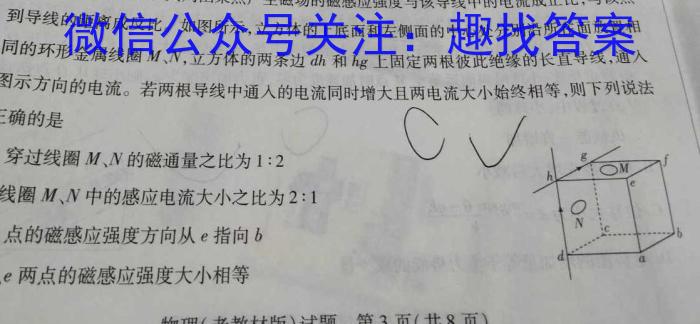 生磁场的磁感应强度与该导线中的电流成正比
到导线的距离成反比。如图所示,立方体的上底面和左侧面的
微信公众号关注:趣找答案
同的环形金属线圈M、N,立方体的两条边dh和hg上固定两根彼此绝缘的长直导线,通入
图示方向的电流。若两根导线中通入的电流同时增大且两电流大小始终相等,则下列说法
正确的是
穿过线圈M、N的磁通量之比为1:2
线圈M、N中的感应电流大小之比为2:1
点的磁感应强度方向从e指向b
e两点的磁感应强度大小相等
g
f
M
h
e
N
c
b
d
a
物理(老教材版)试题 第3页(共8页)